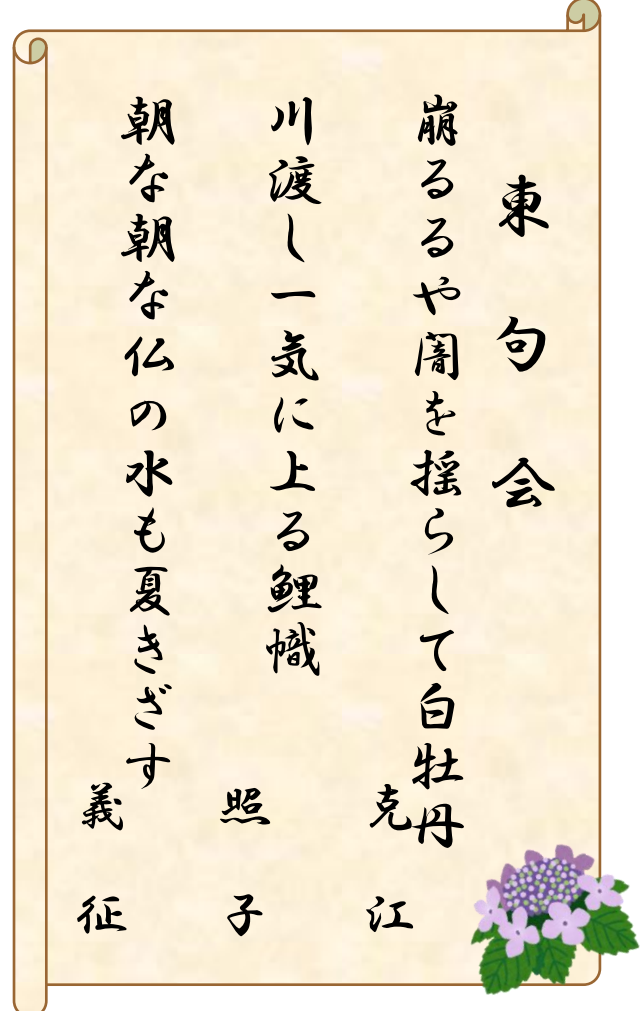 東句会
崩るるや闇を揺らして白牡丹
克江
川渡し一気に上る鯉幟
照子
朝な朝な仏の水も夏きざす
義征